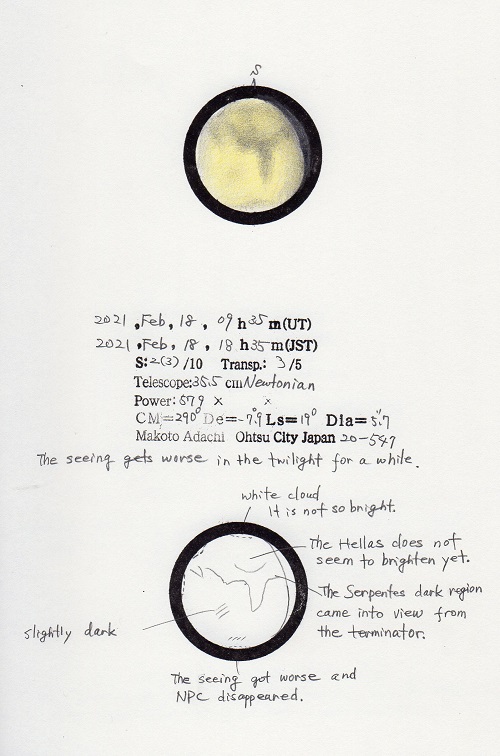 S
2021, Feb, 18, 09 h 35 m (UT)
2021, Feb, 18, 18 h 35 m (JST)
S: 2(3) /10 Transp.: 3 /5
Telescope: 35.5 cm Newtonian
Power: 579 × ×
CM=290° De=-7.9° Ls=19° Dia=5.7"
Makoto Adachi Ohtsu City Japan 20-547
The seeing gets worse in the twilight for a while.
white cloud
It is not so bright.
The Hellas does not
seem to brighten yet.
The Serpentes dark region
came into view from
the terminator.
slightly dark
The seeing got worse and
NPC disappeared.